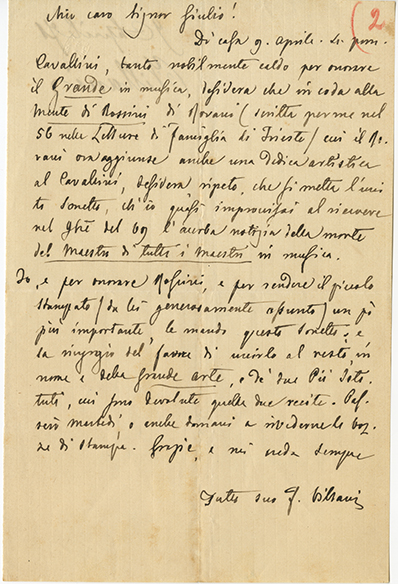 Mio caro Signor Giulio!
(2
Di casa 9. aprile. 4. pom.
Cavallini, tanto nobilmente caldo per onorare
il Grande in musica, desidera che in coda alla
Mente di Rossini di Rovani (scritta per me nel
56 nelle Letture di famiglia di Trieste) cui il Ro-
vani ora aggiunse anche una dedica artistica
al Cavallini, desidera ripeto, che si metta l'uni-
to Sonetto, ch'io quasi improvvisai al ricevere
nel 9bre del 69 l'acerba notizia della morte
del Maestro di tutti i Maestri in musica.
Io, e per onorare Rossini, e per rendere il piccolo
stampato (da lei generosamente assunto) un pò
più importante le mando questo Sonetto; e
la ringrazio del favore di unirlo al resto, in
nome e della grande arte, e de' due Pii Isti-
tuti, cui sono devolute quelle due recite. Pas-
serò martedì o anche domani a rivederne le boz-
ze di stampa. Grazie, e mi creda sempre
Tutto suo F.